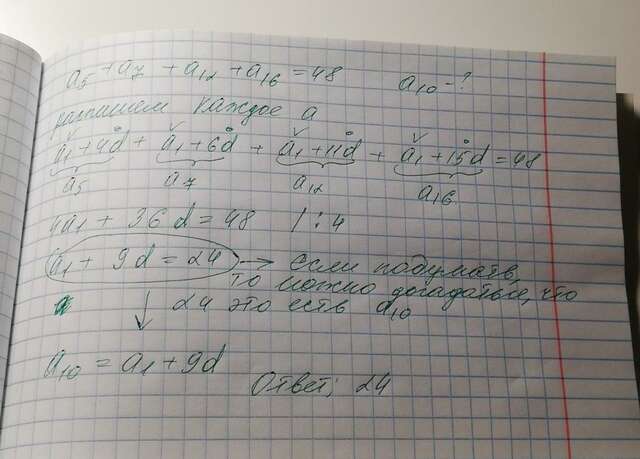 a₅ + a₇ + a₁₂ + a₁₆ = 48 a₁₀ - ?
распишем каждое a
a₁ + 4d + a₁ + 6d + a₁ + 11d + a₁ + 15d = 48
a₅ a₇ a₁₂ a₁₆
4a₁ + 36d = 48 / : 4
a₁ + 9d = 24 → если подумать,
то можно догадаться, что
24 это есть a₁₀
a₁₀ = a₁ + 9d
Ответ: 24